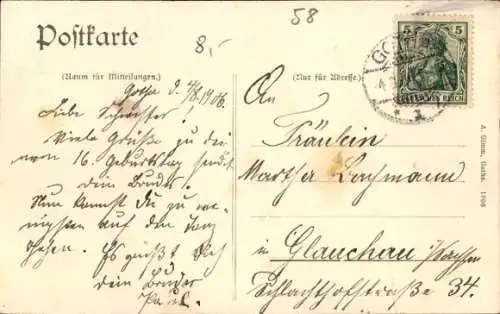 58
8,-
Postkarte
(Raum für Mitteilungen.)
Gotha d. 4/8. 1906.
Liebe Schwester!
Viele Grüße zu dei
nem 16. Geburtstag sendet
dein Bruder.
Nun kannst du zu
auf den
gehen. Es grüßt Dich
dein Bruder
Paul.
(Nur für Adresse.)
An
Fräulein
Martha Lachmann
in Glauchau i/Sachsen
Schlachthofstraße 34.
5 5
DEUTSCHES REICH
GOTHA
1
A. Glenm, Gotha. 1906